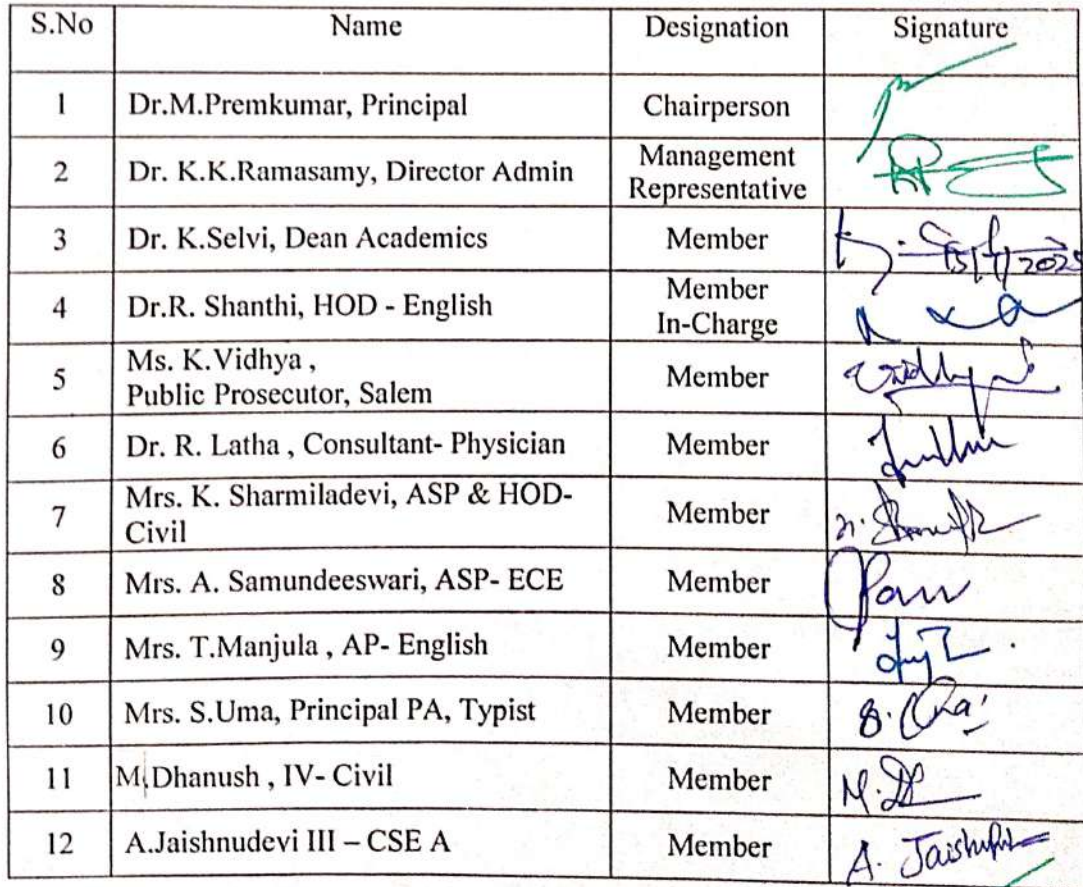 S.No Name Designation Signature
1 Dr.M.Premkumar, Principal Chairperson
2 Dr. K.K.Ramasamy, Director Admin Management
Representative
3 Dr. K.Selvi, Dean Academics Member
4 Dr.R. Shanthi, HOD - English Member
In-Charge
5 Ms. K.Vidhya ,
Public Prosecutor, Salem Member
6 Dr. R. Latha , Consultant- Physician Member
7 Mrs. K. Sharmiladevi, ASP & HOD-
Civil Member
8 Mrs. A. Samundeeswari, ASP- ECE Member
9 Mrs. T.Manjula , AP- English Member
10 Mrs. S.Uma, Principal PA, Typist Member
11 M.Dhanush , IV- Civil Member
12 A.Jaishnudevi III – CSE A Member